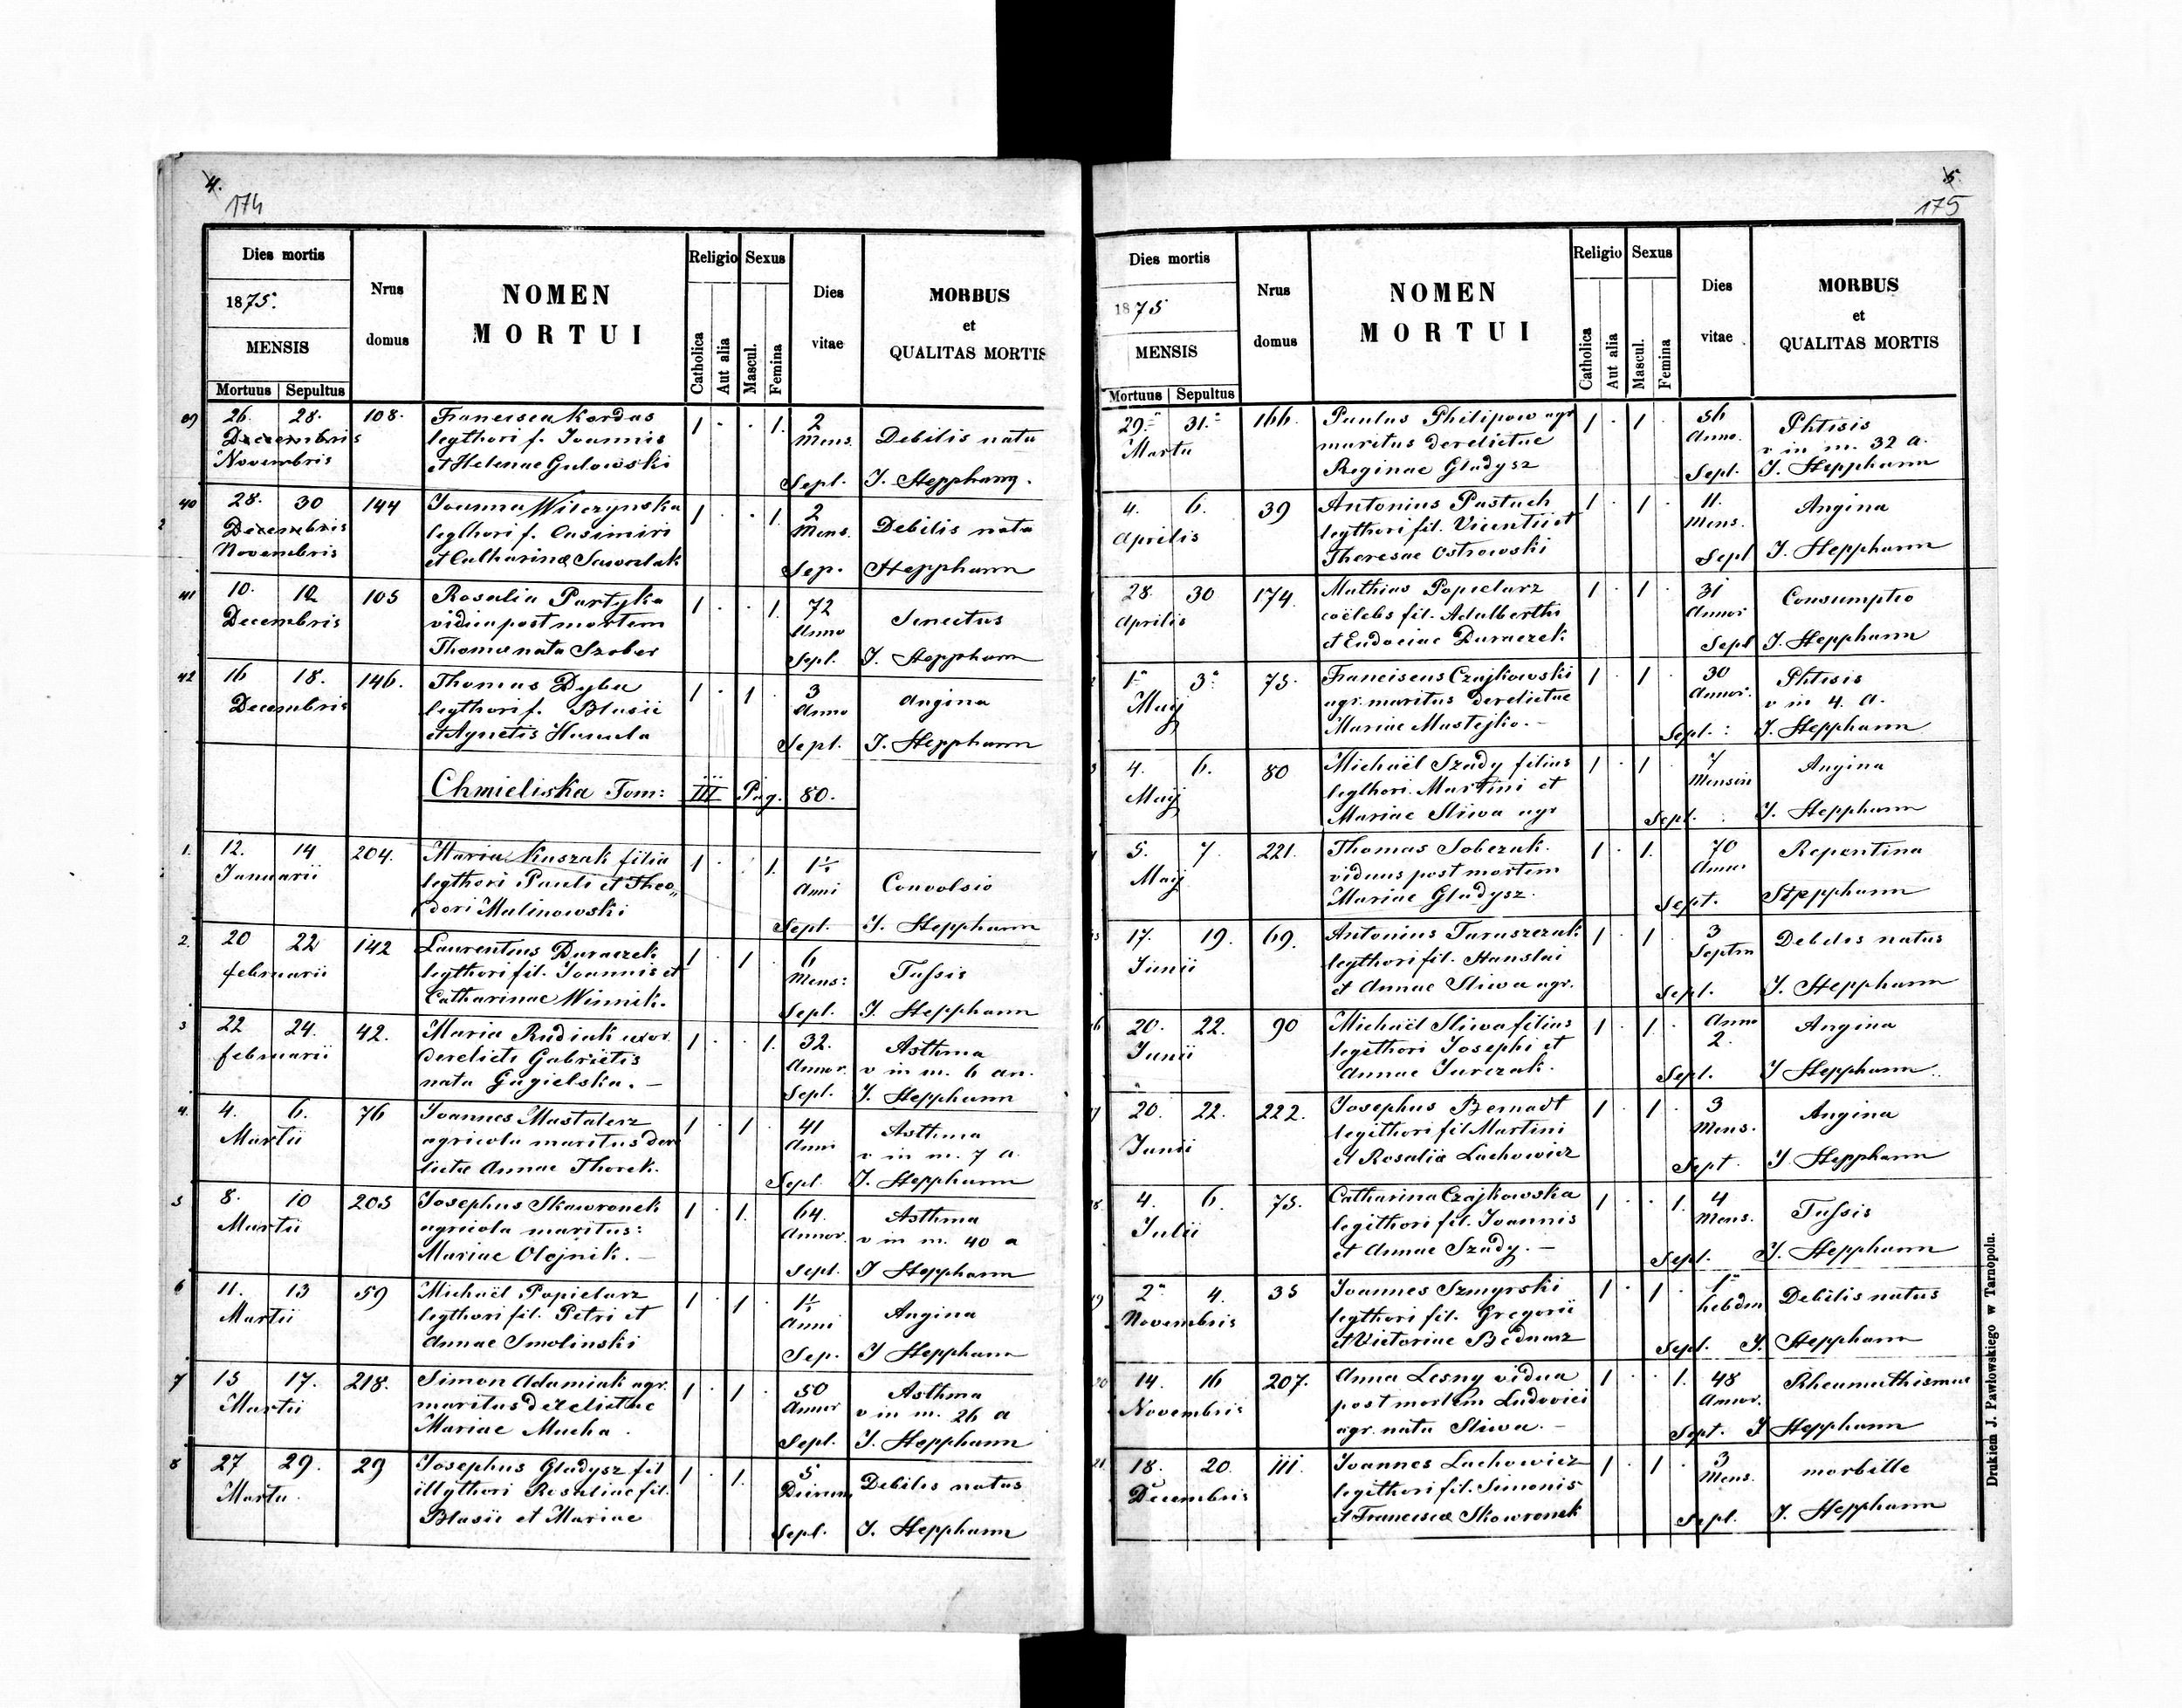 4.
174
Dies mortis
1875.
MENSIS
Mortuus Sepultus
Nrus domus
NOMEN
MORTUI
Religio
Catholica
Aut alia
Sexus
Mascul.
Femina
Dies vitae
MORBUS
et
QUALITAS MORTIS
39) 26. 28. 108. Francisca Kordas 1 · · 1. 2
Decembris legthori f. Joannis Mens. Debilis nata
Novembris et Helenae Gulowski
Sepl. J. Stepphann.
40 28. 30 144 Joanna Wilczynska 1 · · 1. 2
Decembris legthori f. Casimiri Mens. Debilis nata
Novembris et Catharinæ Sawczak
Sep. Stepphann
41 10. 12 105 Rosalia Partyka 1 · · 1. 72
Decembris vidua post mortem Anno Senectus
Thoma nata Szober Sepl. J. Stepphann
42 16 18. 146. Thomas Dyba 1 · 1 · 3
Decembris legthori f. Blasii Anno Angina
et Agnetis Hanula Sepl. J. Stepphann
Chmieliska Tom: III Pag. 80.
1. 12. 14 204. Maria Kuszak filia 1 · · 1.
Januarii legthori Pauli et Theo„ Anni Convolsio
dori Malinowski Sepl. J. Stepphann
2. 20 22 142 Laurentius Duraczek 1 · 1 · 6
februarii legthori fil. Joannis et Mens: Tussis
Catharinae Winnik. Sepl. J. Stepphann
3 22 24. 42. Maria Rudiak uxor 1 · · 1. 32. Asthma
februarii derelicti Gabrielis Annor. v in m. 6 an.
nata Gagielska. – Sepl. J. Stepphann
4. 4. 6. 76 Joannes Mastalerz 1 · 1 · 41 Asthma
Martii agricola maritus dere Anni v in m. 7 a
lictæ Annae Thorek. Sepl J. Stepphann
5 8. 10 205 Josephus Skowronek 1 · 1. 64. Asthma
Martii agricola maritus: Annor. v in m. 40 a
Mariae Olejnik. – Sepl. J Stepphann
6 11. 13 59 Michaël Popielarz 1 · 1 ·
Martii legthori fil. Petri et Anni Angina
Annae Smolinski Sep. J Stepphann
7 15 17. 218. Simon Adamiak agr. 1 · 1 · 50 Asthma
Martii maritus derelictae Annor v in m. 26 a
Mariae Macha. Sepl. J. Stepphann
8 27 29. 29 Josephus Gladysz fil 1 · 1. 5
Martii illgthori Rosaliae fil. Dierum Debilis natus
Blasii et Mariae Sepl. J. Stepphann
5.
175
Dies mortis
1875
MENSIS
Mortuus Sepultus
Nrus domus
NOMEN
MORTUI
Religio
Catholica
Aut alia
Sexus
Mascul.
Femina
Dies vitae
MORBUS
et
QUALITAS MORTIS
29. 31. 166. Paulus Philipow agr 1 · 1 · 56 Phtisis
Martii maritus derelictae Anno. v in m. 32 a.
Reginae Gladysz Sepl. J. Stepphann
4. 6. 39 Antonius Pastuch 1 · 1 · 11. Angina
Aprilis legthori fil. Vicentii et Mens.
Theresae Ostrowski Sepl J. Stepphann
28. 30 174. Mathias Popielarz 1 · 1 · 31 Consumptio
Aprilis coëlebs fil. Adalberthi Annor
et Eudociae Duraczek Sepl J. Stepphann
1. 3. 75. Franciscus Czajkowski 1 · 1 · 30 Phtisis
Maij agr. maritus derelictae Annor. v in 4. a.
Mariae Mastejko. – Sepl. : J. Stepphann
4. 6. 80 Michaël Szady filius 1 · 1 · 7 Angina
Maij legthori. Martini et Mensiu
Mariae Sliwa agr Sepl. J. Stepphann
5. 7. 221. Thomas Sobczak. 1 · 1. 70 Repentina
Maij viduus post mortem Annor
Mariae Gladysz. Sept. Stepphann
17. 19. 69. Antonius Taraszczuk 1 · 1 · 3 Debilis natus
Junii legthori fil. Stanslai Septm
et Annae Sliwa agr. Sepl. J. Stepphann
20. 22. 90 Michaël Sliwa filius 1 · 1 · Anno Angina
Junii legithori Josephi et 2.
Annae Jurczak. Sepl. J Stepphann.
20. 22. 222. Josephus Bernadt 1 · 1 · 3 Angina
Junii legithori fil Martini Mens.
et Rosaliæ Lachowicz Sept. J Stepphann
4. 6. 75. Catharina Czajkowska 1 · · 1. 4 Tussis
Julii legithori fil. Joannis Mens.
et Annae Szady. – Sepl. J. Stepphann
2. 4. 35 Joannes Szmyrski 1 · 1 · 1 Debilis natus
Novembris legthori fil. Gregorii hebdm
et Victoriae Bednarz Sepl. J. Stepphann
14. 16 207. Anna Lesny vidua 1 · · 1. 48 Rheumathismus
Novembris post mortem Ludovici Annor.
agr. nata Sliwa. – Sept. J Stepphann
18. 20. 111. Joannes Lachowicz 1 · 1 · 3 morbille
Decembris legithori fil. Simonis Mens.
et Franciscæ Skowronek Sepl. J. Stepphann
Drukiem J. Pawłowskiego w Tarnopolu.